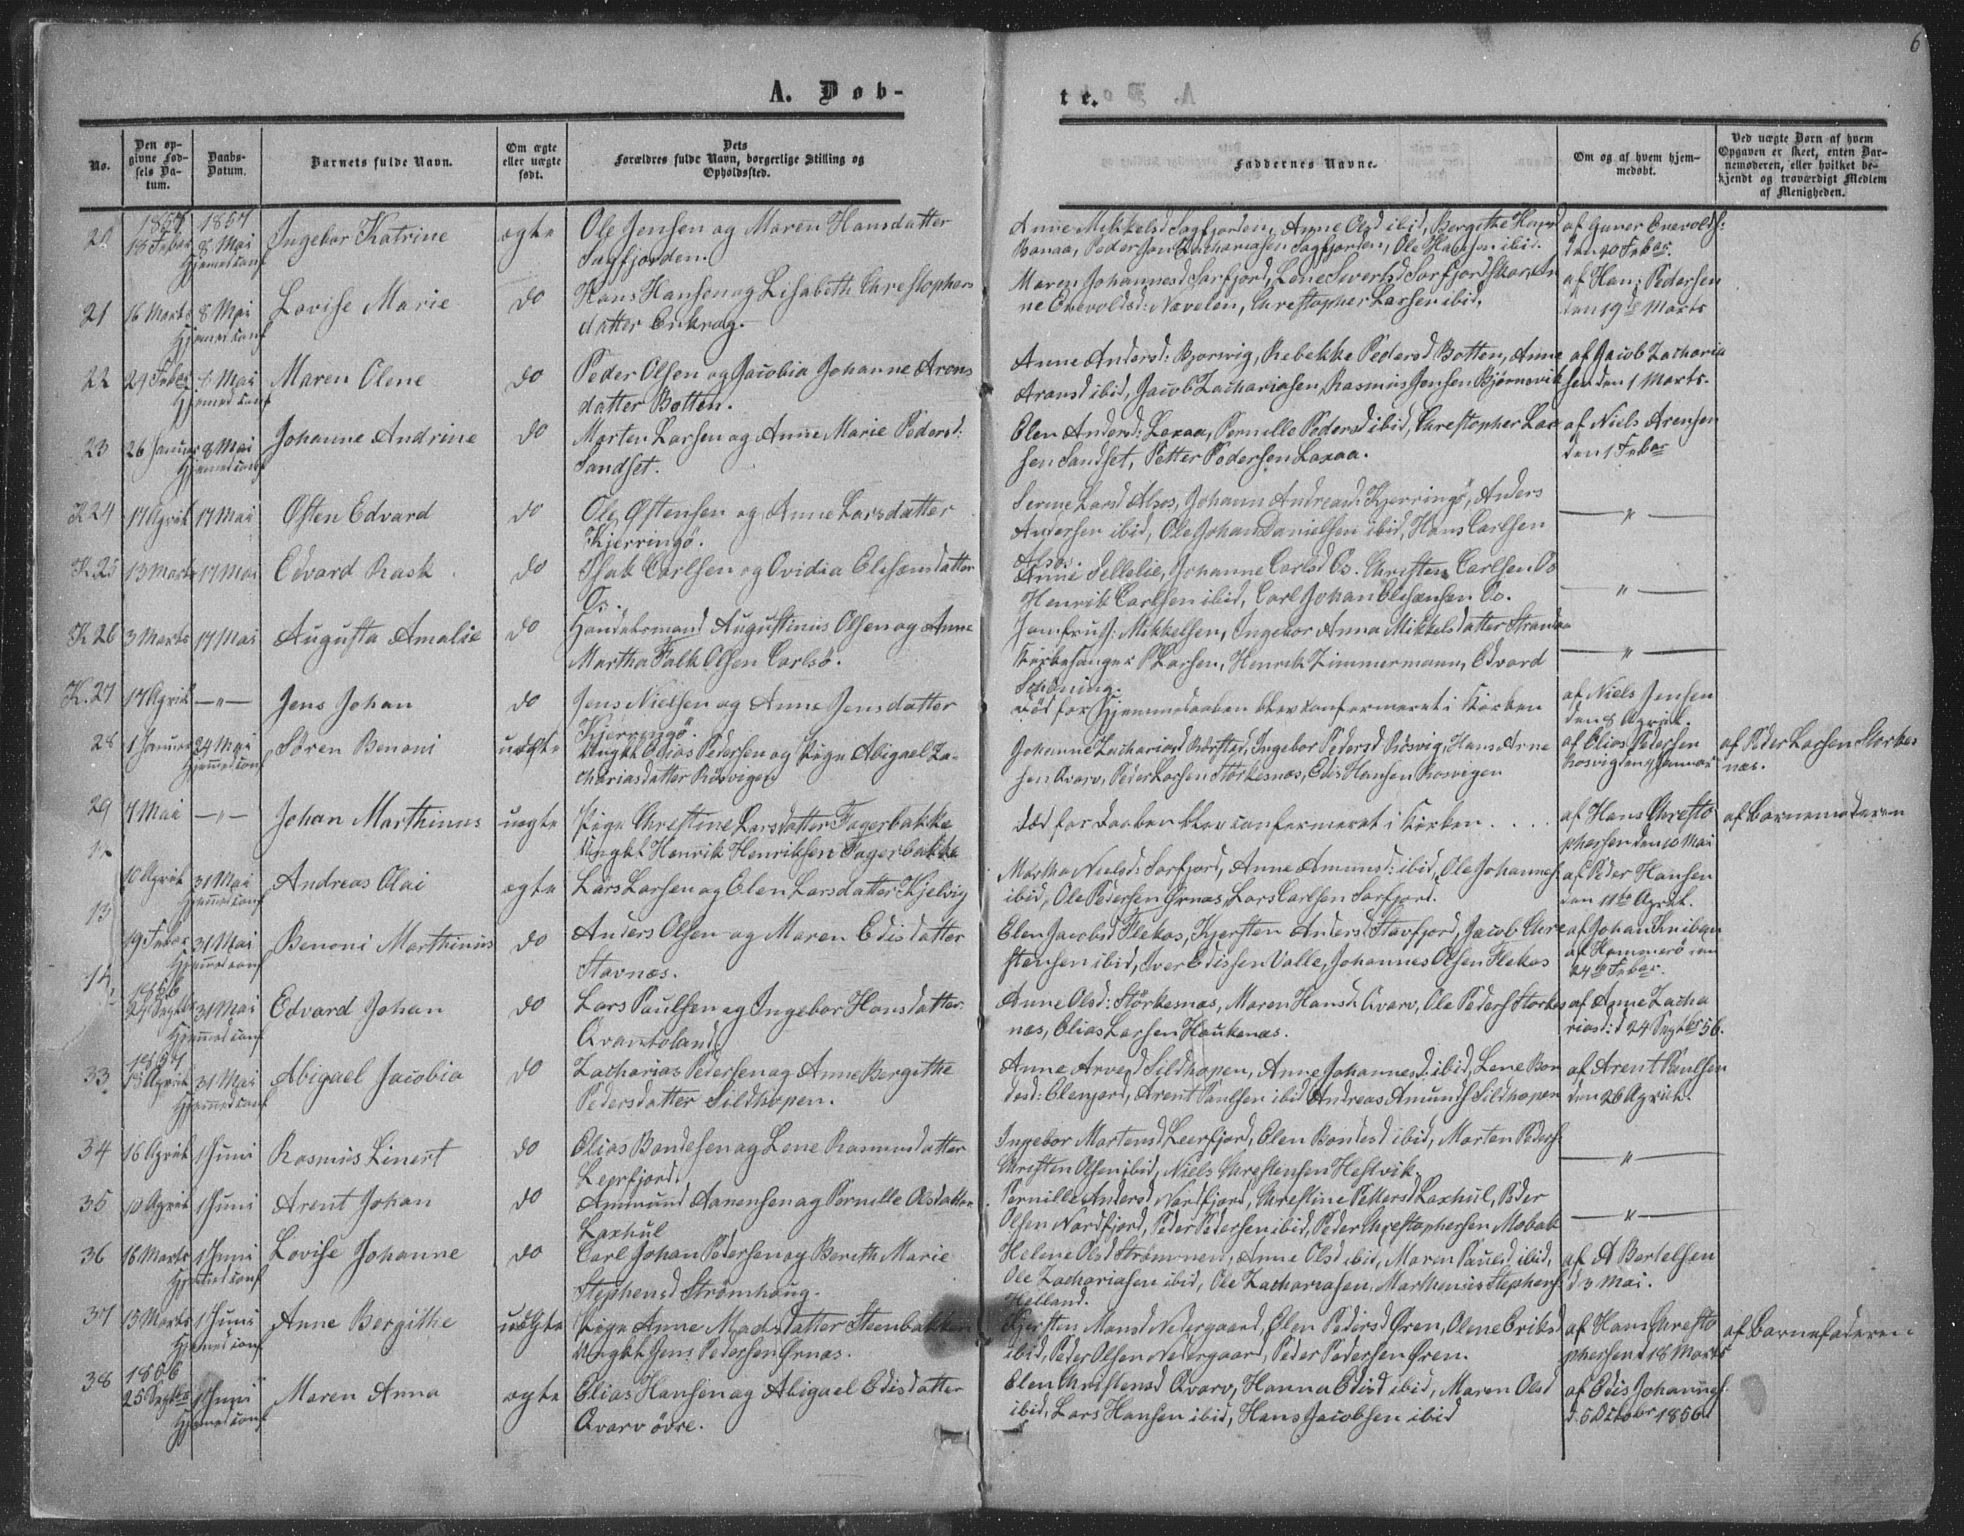 6
A. Døb-
te.
No.
Den op-
givne Fød-
sels Da-
tum.
Daabs-
Datum.
Barnets fulde Navn.
Om ægte
eller uægte
født.
Dets
Forældres fulde Navn, borgerlige Stilling og
Opholdssted.
Faddernes Navne.
Om og af hvem hjem-
medøbt.
Ved uægte Børn af hvem
Opgaven er skeet, enten Bar-
nemoderen, eller hvilket be-
kjendt og troværdigt Medlem
af Menigheden.
1857 1857
20 18 Febar 8 Mai Ingebor Katrine ægte Ole Jensen og Maren Hansdatter
Hjemed conf Sagfjorden.
Anne Mikkelsd Sagfjorden, Anne Olsd ibid, Bergithe Hansd
Bonaa, Peder Jan Zachariasen Sagfjorden, Ole Hansen ibid.
af Gunner Enevolds:
den 20 Febar.
21 16 Marts 8 Mai Lovise Marie do Hans Hansen og Lisabeth Christophers
Hjemed conf datter
Maren Johannesd Sørfjord, Lene Sivertsd Sørfjordskar, An
ne Enevoldsd: Navelen, Christopher Larsen ibid.
af Han: Pedersen
den 19de Marts
22 24 Febar 8 Mai Maren Olene do Peder Olsen og Jacobia Johanne Arons
Hjemed conf datter Botten.
Anne Andersd: Bjorsvig, Rebekke Pedersd Botten, Anne
Aronsd ibid, Jacob Zachariasen, Rasmus Jensen Bjørnsvik
af Jacob Zacharia
sen den 1 Marts.
23 26 Januar 8 Mai Johanne Andrine do Morten Larsen og Anne Marie Pedersd:
Hjemed conf Sandset.
Elen Andersd: Laxaa, Pernille Pedersd ibid, Christopher Lar
sen Sandset, Petter Pedersen Laxaa.
af Niels Arensen
den 1 Febar
K 24 17 April 17 Mai Østen Edvard do Ole Østensen og Anne Larsdatter
Kjerringø.
Serine Larsd Alsos, Johann Andreasd: Kjerringø, Anders
Andersen ibid, Ole Johan Danielsen ibid, Hans Carlsen
Alsos.
— " —
K 25 13 Marts 17 Mai Edvard Rask do Isak Carlsen og Ovidia Elisæusdatter
Os.
Anne Sellelie, Johanne Carlsd Os. Christen Carlsen Os
Henrik Carlsen ibid, Carl Johan Elisæusen Os.
— " —
K 26 3 Marts 17 Mai Augusta Amalie do Handelsmand Augustinus Olsen og Anne
Martha Falk Olsen Carlsø.
Jomfru J: Mikkelsen, Ingebor Anna Mikkelsdatter Strandaa
Kirkesanger P Larsen, Henrik Zimmermann, Edvard
Schøning.
— " —
K. 27 17 April — " — Jens Johan do Jens Nielsen og Anne Jensdatter
Kjerringø.
død før Hjemmedaaben blev conformeret i Kirken
af Niels Jensen
den 8 April.
28 1 Januar 24 Mai Søren Benoni uægte Ungkl Elias Pedersen og Pige Abigael Za-
Hjemmed conf chariasdatter Røsvigen
Johanne Zachariasd Rørsted, Ingebor Pedersd Røsvig, Hans Arne
sen Qvarv, Peder Larsen Størkesnæs, Edis Hansen Rosvigen
af Elias Pedersen
Rosvig den 9 Januar
af Peder Larsen Størkes
næs.
29 7 Mai — " — Johan Marthinus uægte Pige Christine Larsdatter Fagerbakke
Ungkl Henrik Henriksen Fagerbakke
død før Daaben blev conformeret i Kirken ....
af Hans Christo
phersen den 10 Mai
af Barnemoderen
10 April 31 Mai Andreas Olai ægte Lars Larsen og Elen Larsdatter Kjelvig
Hjemmed conf
Martha Nielsd: Sørfjord, Anne Amundsd: ibid, Ole Johannes:
ibid, Ole Pedersen Ørnæs, Lars Carlsen Sørfjord.
af Peder Hansen
den 11te April.
13
19 Febar 31 Mai Benoni Marthinus do Anders Olsen og Maren Edisdatter
Hjemmed conf Stavnæs.
Elen Jacobsd Flekas, Kjersten Andersd Stavfjord, Jacob Chri
stensen ibid, Iver Edissen Valle, Johannes Olsen Flekas
af Johan Kniben
af Hammerø den
24de Febar.
14
1856
24 Septbr 31 Mai Edvard Johan do Lars Paulsen og Ingebor Hansdatter
Hjemmed conf Qvantoland
Anne Olsd: Størkesnæs, Maren Hansd: Qvarv, Ole Peders Størkes
næs, Elias Larsen Haukenæs.
af Anne Zacha
riasd: d 24 Septbr 56.
1857
33 18 April 31 Mai Abigael Jacobia do Zacharias Pedersen og Anne Bergithe
Hjemmed conf Pedersdatter Sildhopen.
Anne Arvesd Sildhopen, Anne Johannesd: ibid, Lene Bon
desd: Elenjord, Arent Paulsen ibid Andreas Amunds Sildhopen
af Arent Paulsen
den 26 April.
34 16 April 1 Juni Rasmus Linert do Elias Bondesen og Lene Rasmusdatter
Leerfjord.
Ingebor Martensd Leerfjord, Elen Bondesd ibid, Morten Peders:
Christen Olsen ibid, Niels Christensen Hestvik.
— " —
35 10 April 1 Juni Arent Johan do Ammund Aanensen og Pernille Olsdatter
Laxhul
Pernille Andersd Nordfjord, Christine Pettersd Laxhul, Peder
Olsen Nordfjord, Peder Pedersen ibid, Peder Christophersen Mobak
— " —
36 16 Marts 1 Juni Lovise Johanne do Carl Johan Pedersen og Bereth Marie
Hjemed conf Stephensd Strømhaug.
Helene Olsd Strømmen, Anne Olsd ibid, Maren Paulsd ibid,
Ole Zachariasen ibid, Ole Zachariasen, Marthinus Stephens:
Helland.
af A Bertelsen
d 3 Mai.
37 13 Marts 1 Juni Anne Bergithe uægte Pige Anne Madsdatter Steenbakken
Hjemed conf Ungkl Jens Pedersen Ørnæs.
Kjersten Monsd Nedergaard, Elen Pedersd Øren, Olene Eriksd
ibid, Peder Olsen Nedergaard, Peder Pedersen Øren.
af Hans Christo
phersen d 18 Marts
af Barnefaderen
1856
38 25 Septbr 1 Juni Maren Anna ægte Elias Hansen og Abigael Edisdatter
Hjemed conf Qvarv øvre.
Elen Christensd Qvarv, Hanna Edisd ibid, Maren Olsd
ibid, Lars Hansen ibid, Hans Jacobsen ibid
af Edis Johannes:
d. 5 Octobr 1856